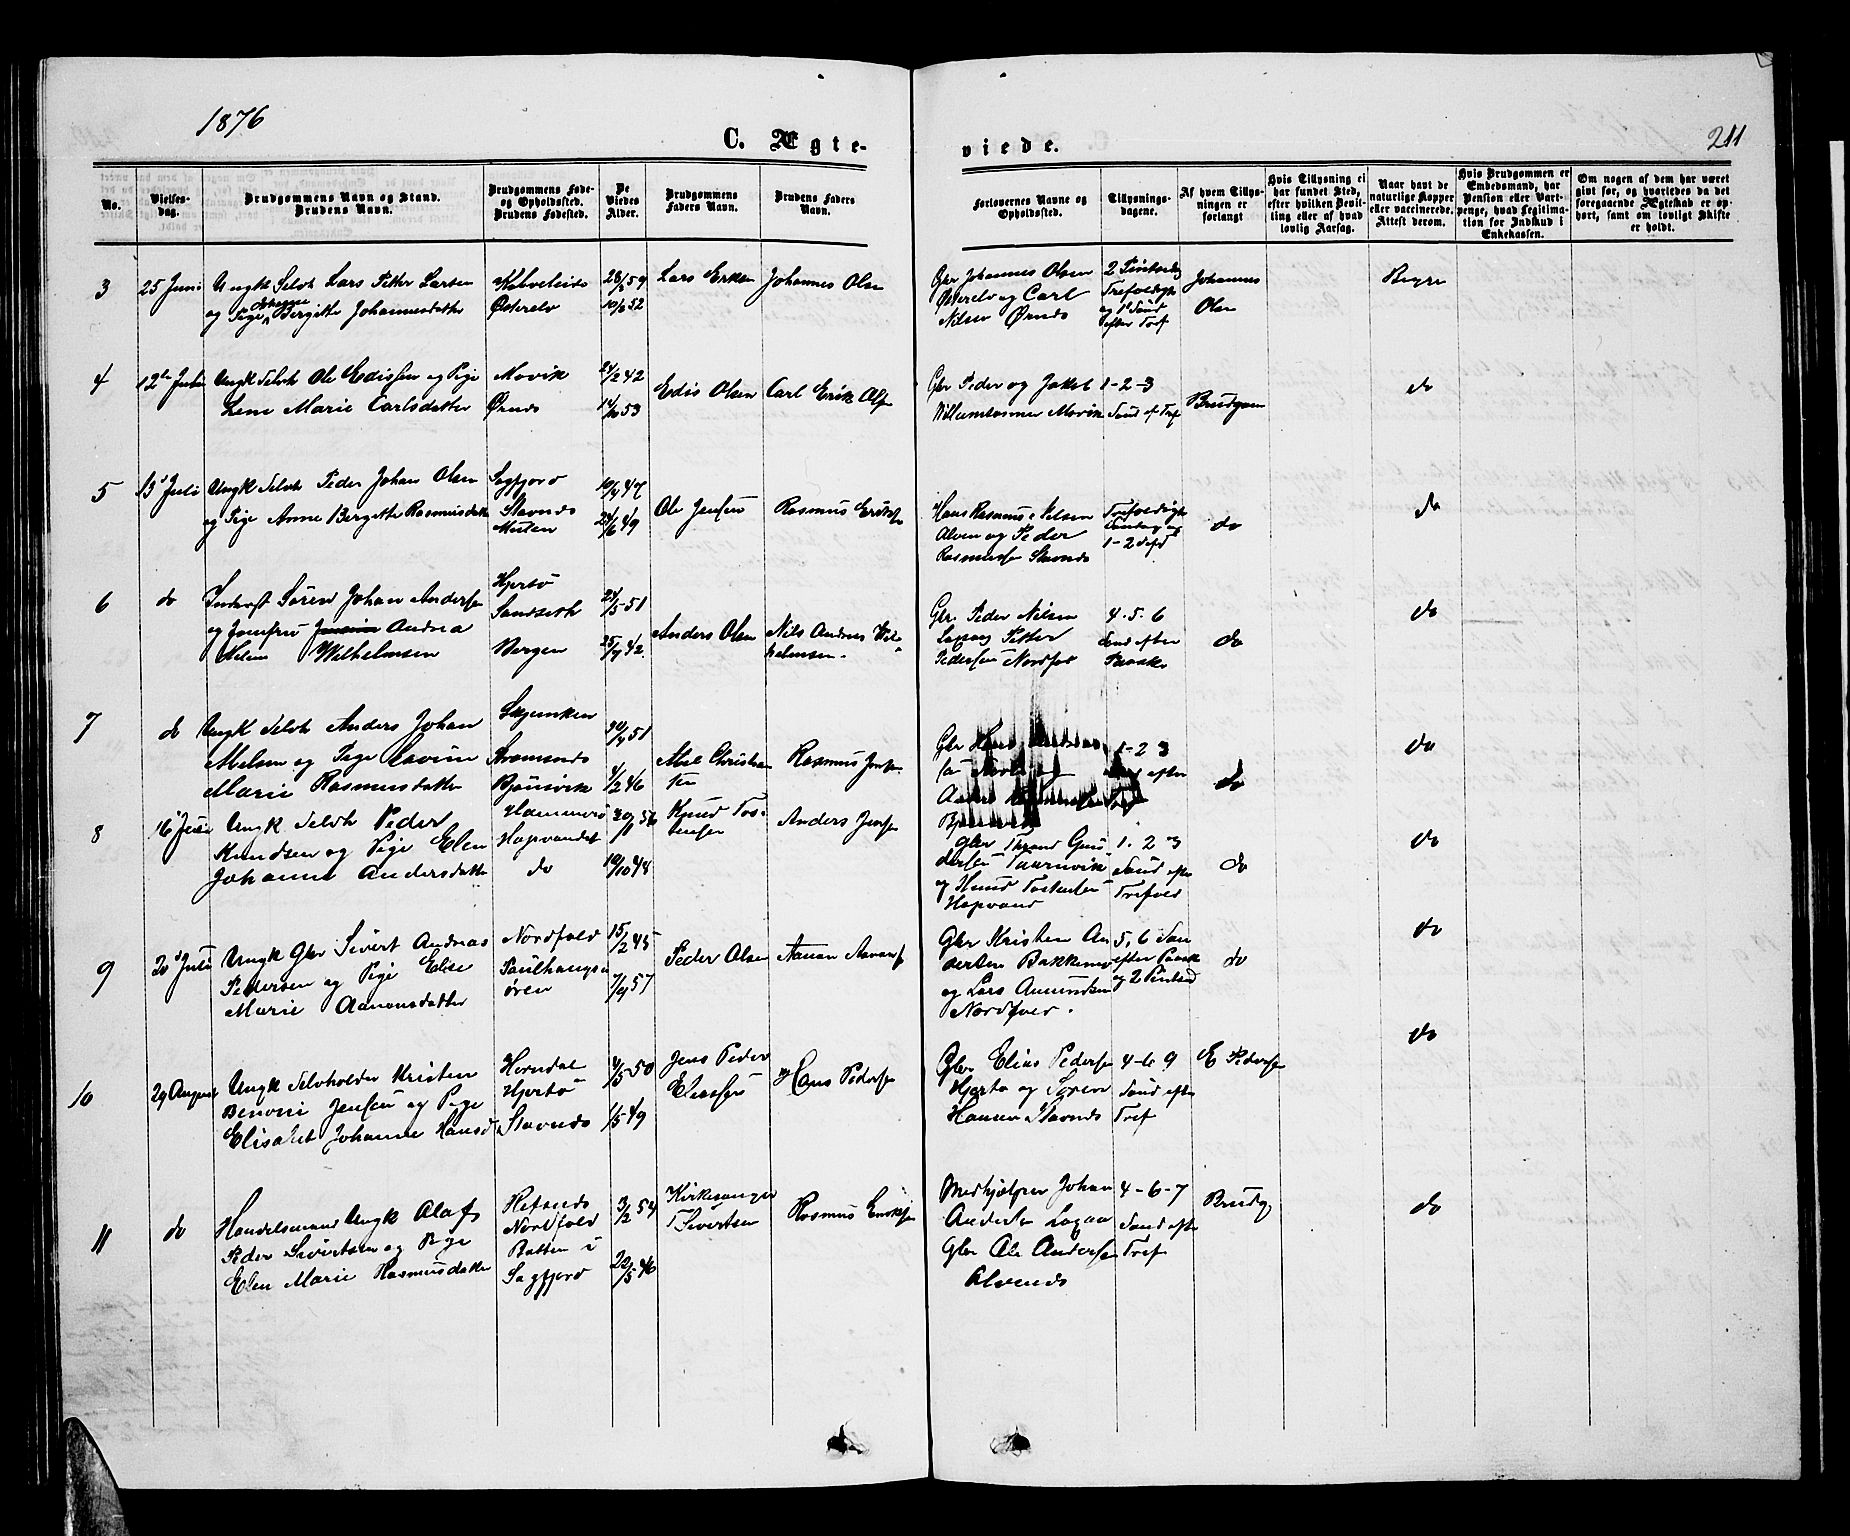 1876
C. Ægte-
viede.
211
No.
Vielses-
dag.
Brudgommens Navn og Stand.
Brudens Navn.
Brudgommens Føde-
og Opholdssted.
Brudens Fødested.
De
Viedes
Alder.
Brudgommens
Faders Navn.
Brudens Faders
Navn.
Forlovernes Navne og
Opholdssted.
Tillysnings-
dagene.
Af hvem Tillys-
ningen er
forlangt
Hvis Tillysning ei
har fundet Sted,
efter hvilken Bevil-
ling eller af hvad
lovlig Aarsag.
Naar havt de
naturlige Kopper
eller vaccinerede.
Attest derom.
Hvis Brudgommen er
Embedsmand, har
Pension eller Vart-
penge, hvad Legitima-
tion for Indskud i
Enkekassen.
Om nogen af dem har været
gift før, og hvorledes da det
foregaaende Ægteskab er op-
hørt, samt om lovligt Skifte
er holdt.
3 25 Juni Ungk Selvh Lars Petter Larsen
og Pige Bergitte Johannesdatter
Østerelv
28/5 59
10/6 52
Lars Erksen Johannes Olsen
Gbr Johannes Olsen
Østerelv og Carl
Nilsen Ørnes
2 Pintsedag
Trefoldigh
og 1 Sønd
efter Tref
Johannes
Olsen
Begge
4 12te Juli Ungk Selvh Ole Edissen og Pige
Lene Marie Carlsdatter
Movik
Ørnes
2/2 42
14/10 53
Edis Olsen Carl Erik Ols
Gbr Peder og Jakob
Willumsønner Movik
1-2-3
Sønd ef Tref
Brudgom
do
5 13 Juli Ungk Selvh Peder Johan Olsen
og Pige Anne Bergitte Rasmusdatter
Sagfjord
Stavnes
10/4 47
24/6 49
Ole Jensen Rasmus Eriksen
Hans Rasmus Nilsen
Alven og Peder
Rasmussen Stavnes
Trefoldigh
Søndag og
1-2 def
do
do
6 do Inderst Søren Johan Andersen
og Jomfru Andrea
Nilsen Wilhelmsen
Hjertø
Sandseth
Bergen
24/5 51
25/4 42
Anders Olsen Nils Andreas Wil-
helmsen.
Gbr Peder Nilsen
Petter
Pedersen Nordfol
4. 5. 6
Sønd efter
Paaske
do
do
7 do Ungk Selvh Anders Johan
Abelsen og Pige Lovise
Marie Rasmusdatter
Stromsnes
Bjørnsvik
30/4 51
4/2 46
Abel Christian
sen
Rasmus Jensen
Gbr Hans
1-2 3
efter
do
do
8 16 Juli Ungk Selvh Peder
Knudsen og Pige Elen
Johanne Andersdatter
Hammerø
Hopvandet
do
30/1 56
19/10 48
Knud Tos-
tensen
Anders Jensen
Gbr
og Knud Tostensen
Hopvand
1. 2 3
Sønd efter
Trefold
do
do
9 20 Juli Ungk Gbr Sivert Andreas
Pedersen og Pige Elise
Marie Aanonsdatter
Nordfold
øren
15/2 45
7/9 57
Peder Olsen Aanon
Gbr Kristen An
dersen Bakkemo
og Lars Amundsen
Nordfold.
5, 6 Søn
efter Paaske
og 2 Pintsed
do
do
10 29 August Ungk Selvholder Kristen
Benoni Jensen og Pige
Elisabet Johanne Hansd
Horndal
Hjertø
Stavnes
4/5 50
1/5 49
Jens Peder
Eliassen
Hans Pedersen
Gbr Elias Pedersen
Hjertø og Søren
Hansen Stavnes
4-6 9
Sønd efter
Tref
E Pedersen
do
11 do Handelsmand Ungk Olaf
Peder Sivertsen og Pige
Elen Marie Rasmusdatter
Nordfold
Botten i
Sagfjord
3/2 54
22/5 46
Kirkesanger
T Sivertsen
Rasmus Eriksen
Medhjælper Johan
Andersen
Gbr Ole Andersen
Alvenes
4-6-7
Sønd efter
Tref
Brudg
do